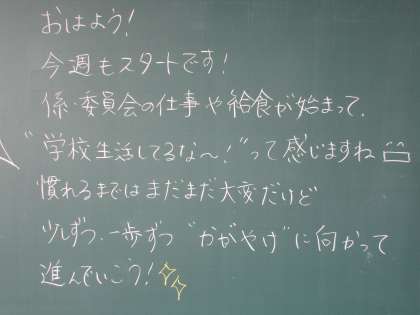 おはよう!
今週もスタートです!
係・委員会の仕事や給食が始まって、
"学校生活してるな〜!"って感じますね
慣れるまではまだまだ大変だけど
少しずつ、一歩ずつ"かがやけ"に向かって
進んでいこう!